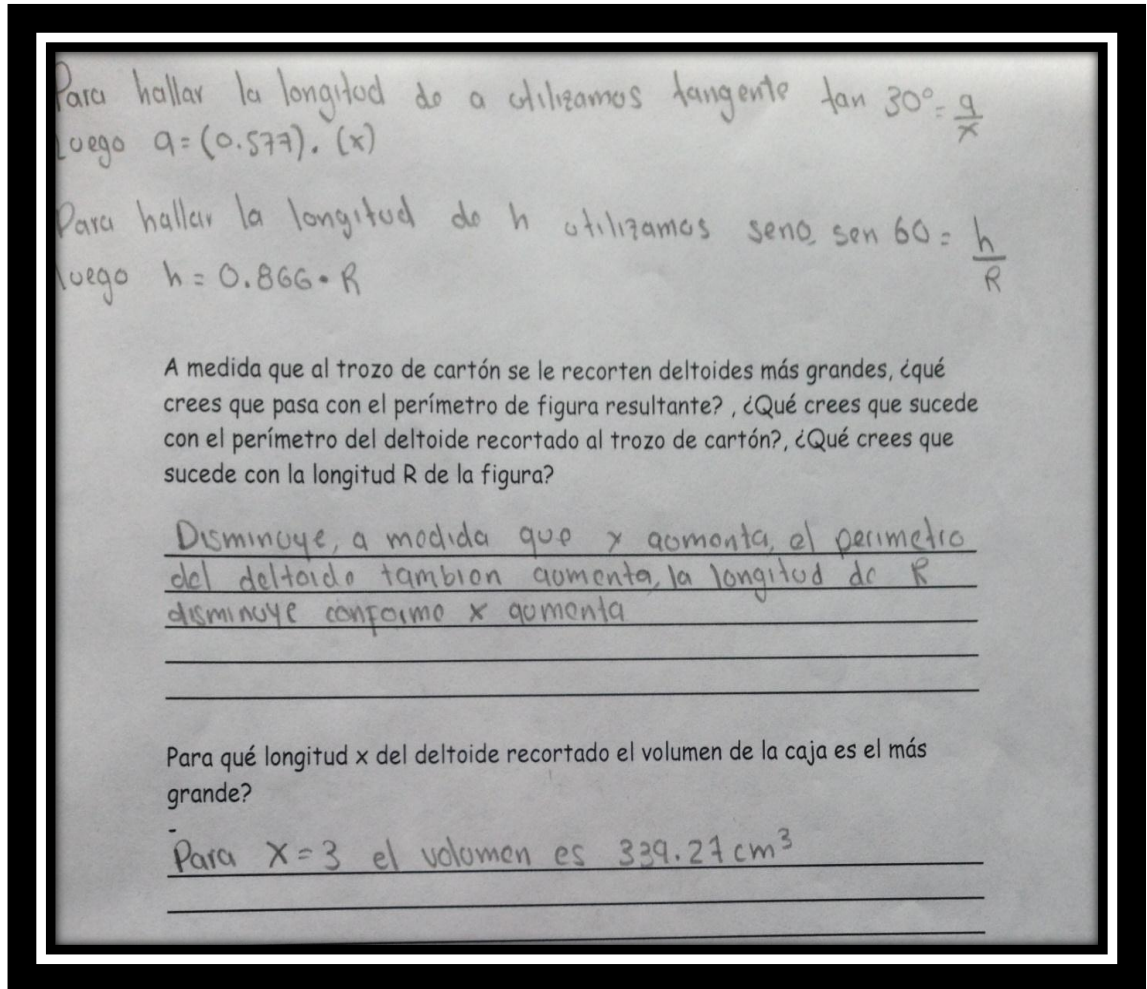 Para hallar la longitud de a utilizamos tangente tan 30° = a/x
Luego a = (0.577). (x)
Para hallar la longitud de h utilizamos seno, sen 60 = h/R
luego h = 0.866 • R
A medida que al trozo de cartón se le recorten deltoides más grandes, ¿qué
crees que pasa con el perímetro de figura resultante? , ¿Qué crees que sucede
con el perímetro del deltoide recortado al trozo de cartón?, ¿Qué crees que
sucede con la longitud R de la figura?
Disminuye, a medida que x aumenta, el perimetro
del deltoide tambien aumenta, la longitud de R
disminuye conforme x aumenta
Para qué longitud x del deltoide recortado el volumen de la caja es el más
grande?
-
Para X = 3 el volumen es 339.27 cm³